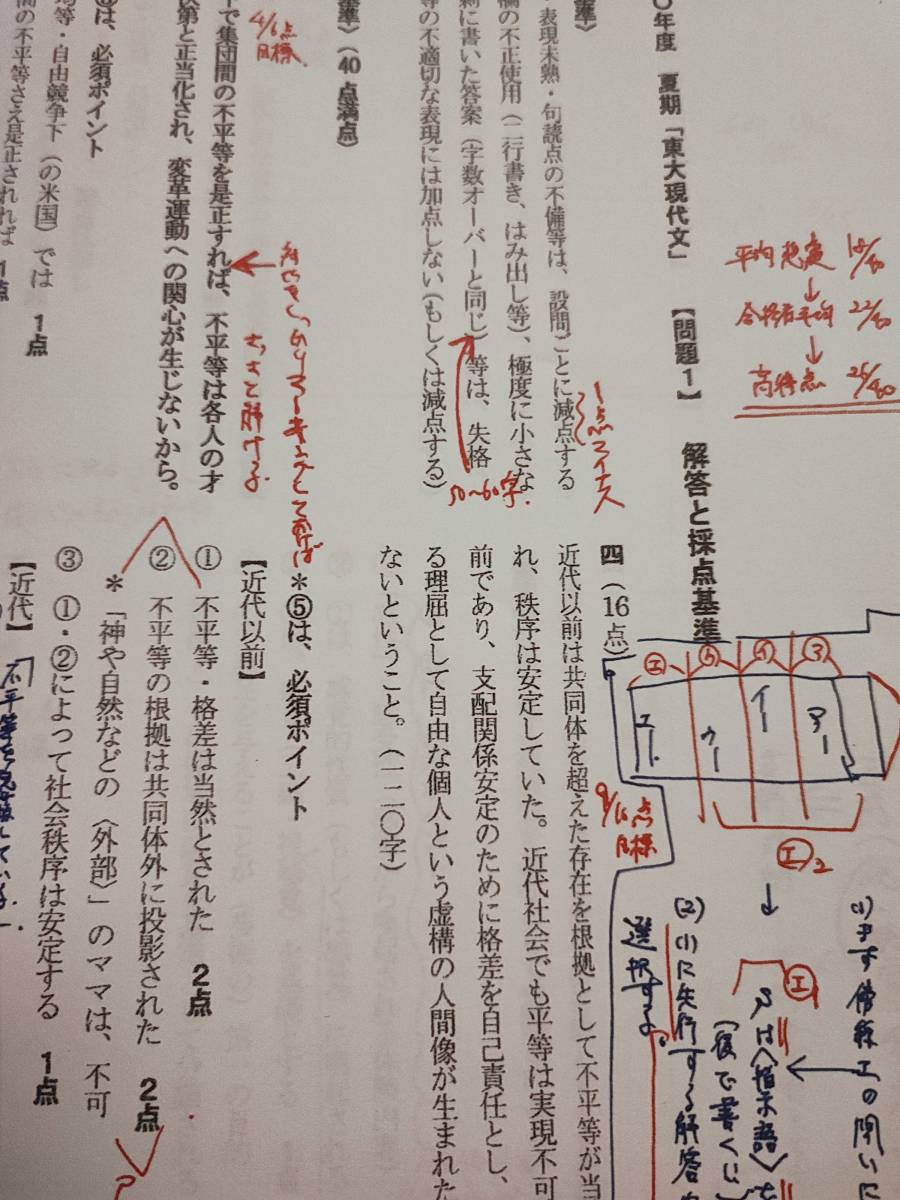 〇年度 夏期「東大現代文」 【問題1】 解答と採点基準
平均想定
↓
合格者平均 22/40
↓
高得点 25/40
準〉
・表現未熟・句読点の不備等は、設問ごとに減点する
欄の不正使用(二行書き、はみ出し等)、極度に小さな
に書いた答案(字数オーバーと同じ)等は、失格
等の不適切な表現には加点しない(もしくは減点する)
1点マイナス
50〜60字
基準〉(40点満点)
4/6点
目標
で集団間の不平等を是正すれば、不平等は各人の才
第と正当化され、変革運動への関心が生じないから。
は、必須ポイント
等・自由競争下(の米国)では 1点
間の不平等さえ是正されれば 1点
四(16点)
近代以前は共同体を超えた存在を根拠として不平等が当
れ、秩序は安定していた。近代社会でも平等は実現不可
前であり、支配関係安定のために格差を自己責任とし、
る理屈として自由な個人という虚構の人間像が生まれた
ないということ。(一二〇字)
9/16点
目標
*⑤は、必須ポイント
【近代以前】
① 不平等・格差は当然とされた 2点
② 不平等の根拠は共同体外に投影された 2点
*「神や自然などの〈外部〉」のママは、不可
③ ①・②によって社会秩序は安定する 1点
【近代】
③
④
⑤
エ
ア
イ
ウ
エ
(1)まず傍線エの問いに
は〈指示語〉
(後で書くに
(2)(1)に失行する解答
選択する。